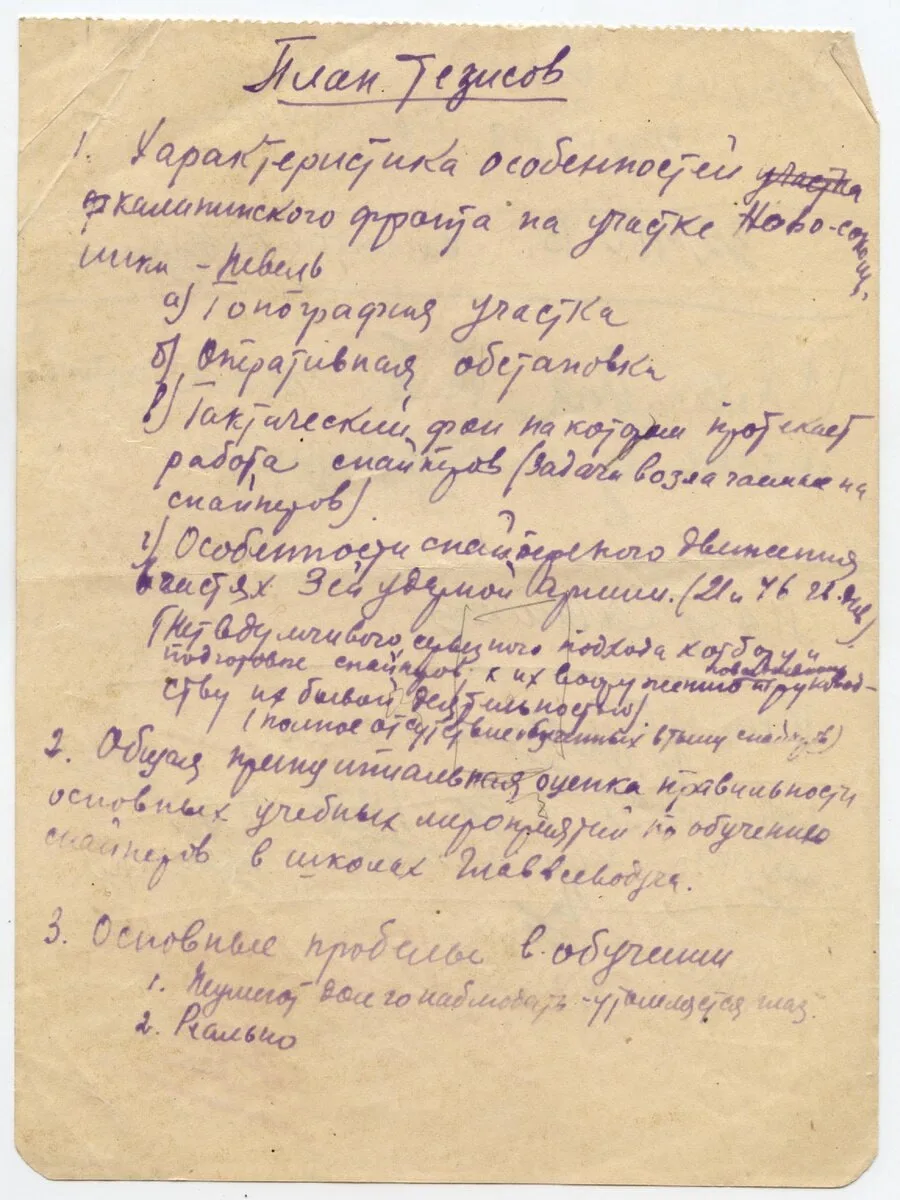 План тезисов
1. Характеристика особенностей участка
калининского фронта на участке Ново-сокольники - Невель
а) Топография участка
б) Оперативная обстановка
в) Тактический фон на котором протекает
работа снайперов (задачи возлагаемые на
снайперов)
г) Особенности снайперского движения
в частях 3ей ударной Армии. (21 и 46 гв. див)
(Нет вдумчивого серьезного подхода к отбору и
подготовке снайперов, к их вооружению и руковод-
ству их боевой деятельностью)
(полное отсутствие обученных в тылу снайперов)
2. Общая принципиальная оценка правильности
основных учебных мероприятий по обучению
снайперов в школах Главвсевобуча.
3. Основные пробелы в обучении
1. Неумеют долго наблюдать - утомляется глаз.
2. Реально